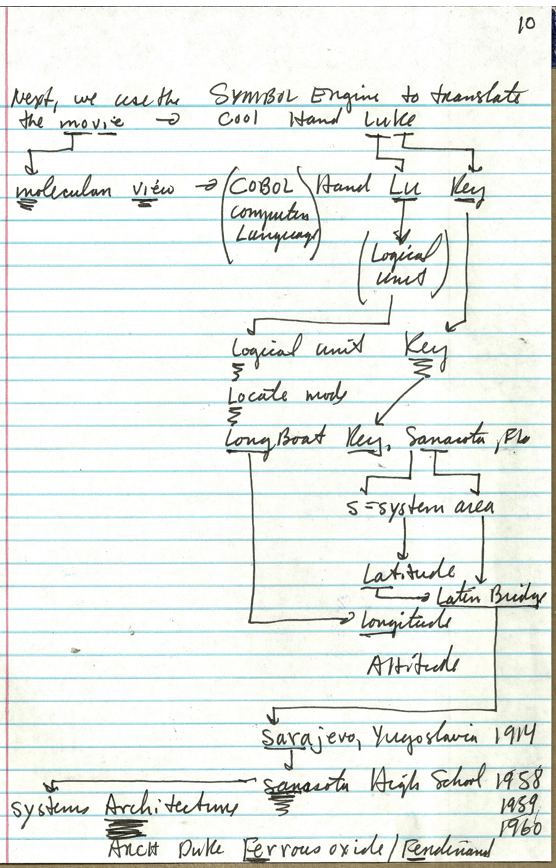 10
Next, we use the SYMBOL Engine to translate
the movie → Cool Hand Luke
molecular view → (COBOL Hand Lu Key
computer
Language)
(Logical
unit)
Logical unit Key
Locate mode
LongBoat Key, Sarasota, Fla
s=system area
Latitude
Latin Bridge
Longitude
Altitude
Sarajevo, Yugoslavia 1914
Sarasota High School 1958
systems Architecture 1959
1960
Arch Duke Ferrous oxide / Ferdinand